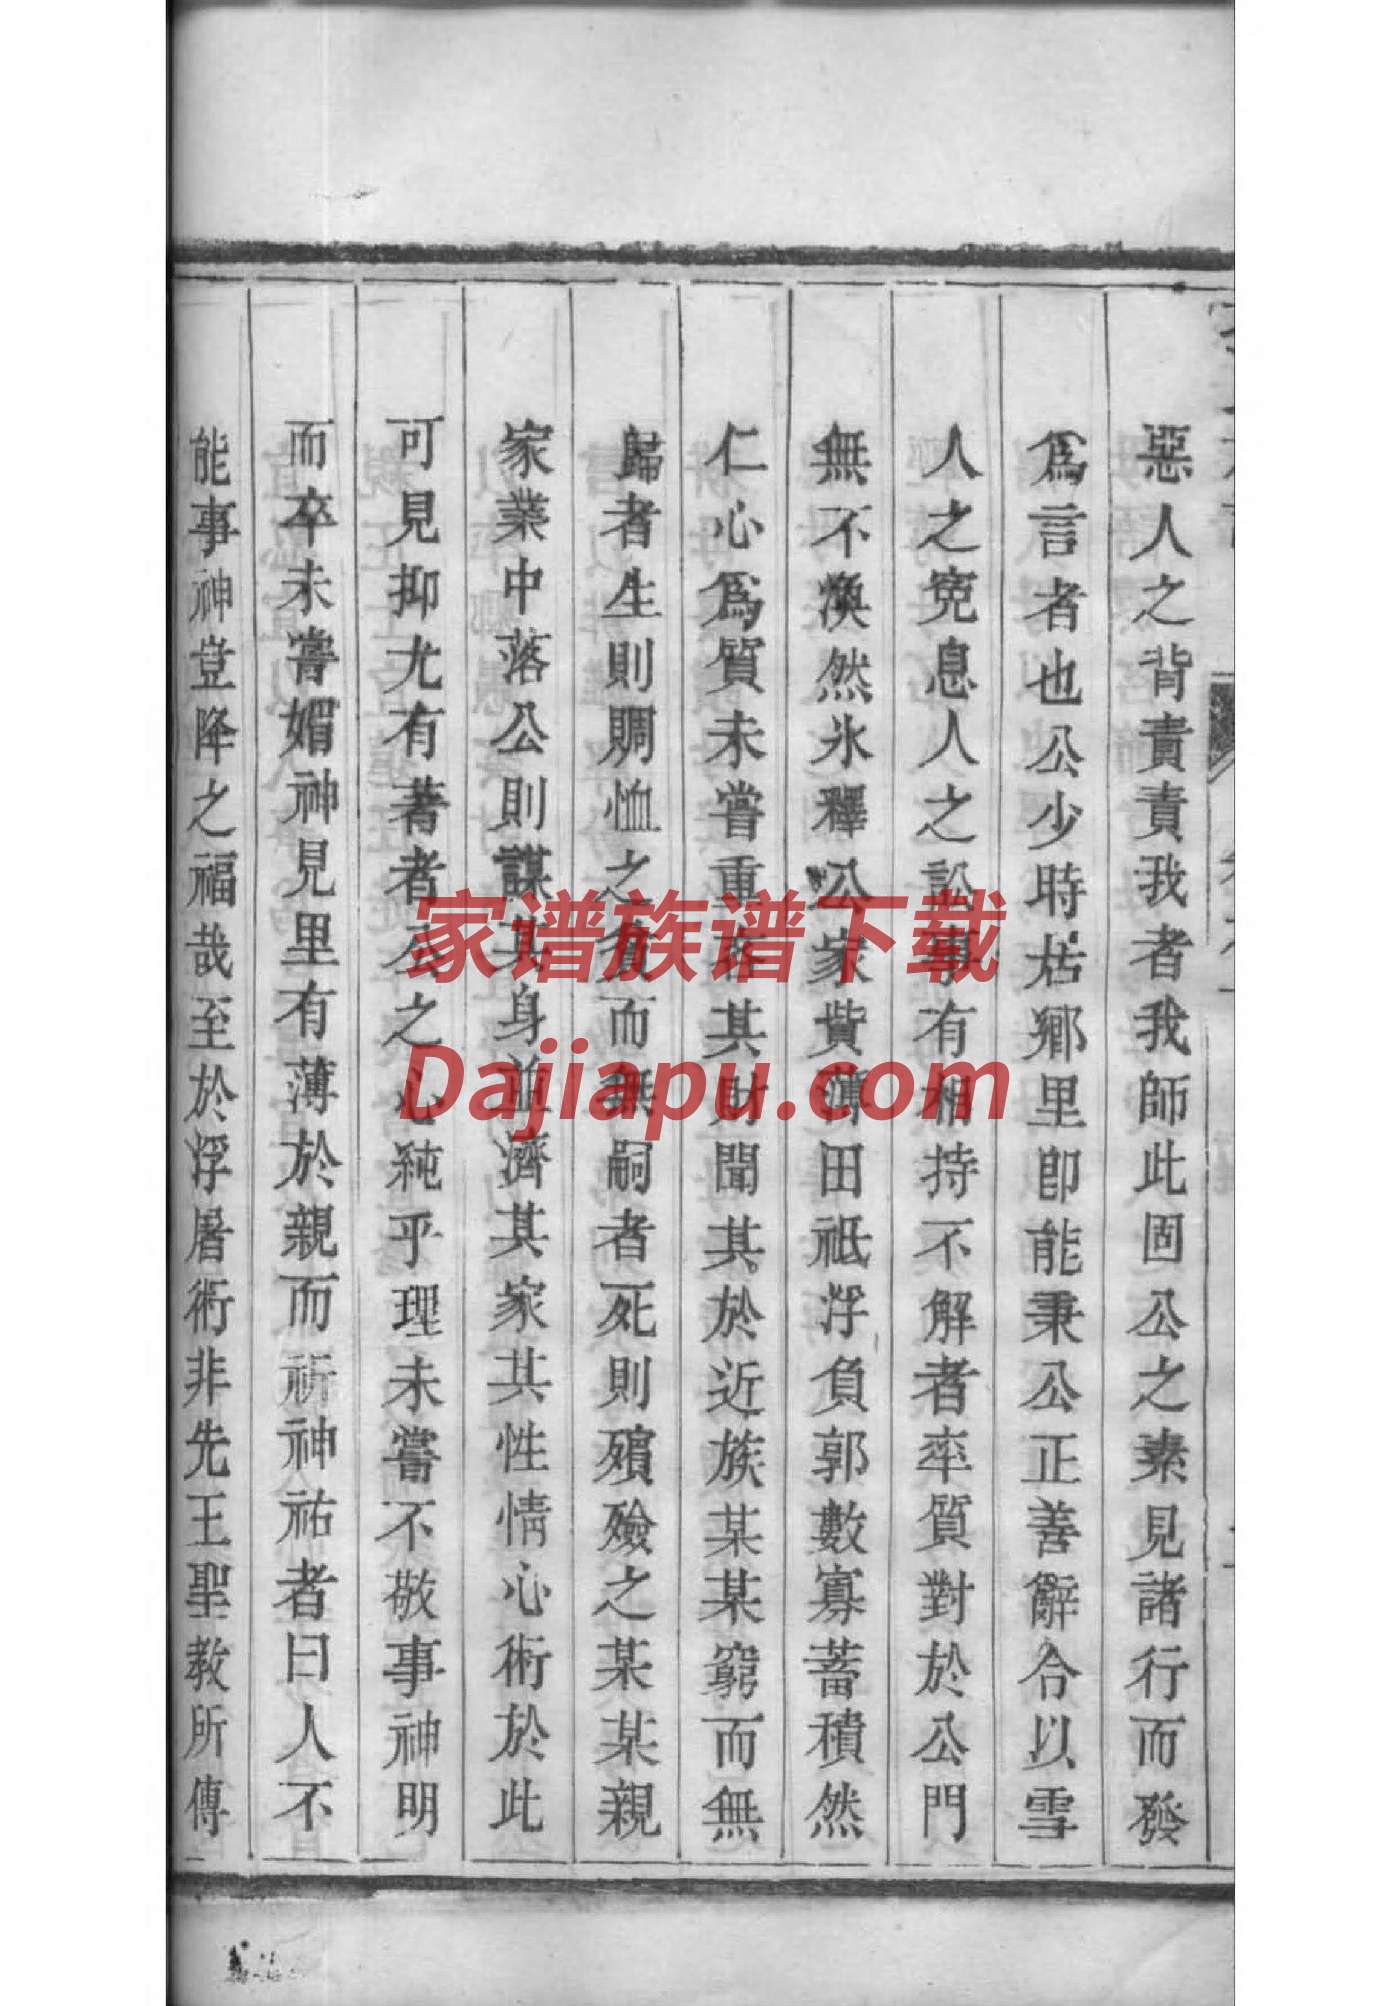 惡人之背責責我者我師此固公之素見諸行而發
爲言者也公少時居鄉里卽能秉公正善辭合以雪
人之寃息人之訟事有相持不解者率質對於公門
無不渙然氷釋公家貲薄田祗浮負郭數寡蓄積然
仁心爲質未嘗重吝其財聞其於近族某某窮而無
歸者生則賙恤之貧而無嗣者死則殯殮之某某親
家業中落公則謀其身並濟其家其性情心術於此
可見抑尤有著者公之心純乎理未嘗不敬事神明
而卒未嘗媚神見里有薄於親而祈神祐者曰人不
能事神豈降之福哉至於浮屠術非先王聖教所傳
家谱族谱下载
Dajiapu.com